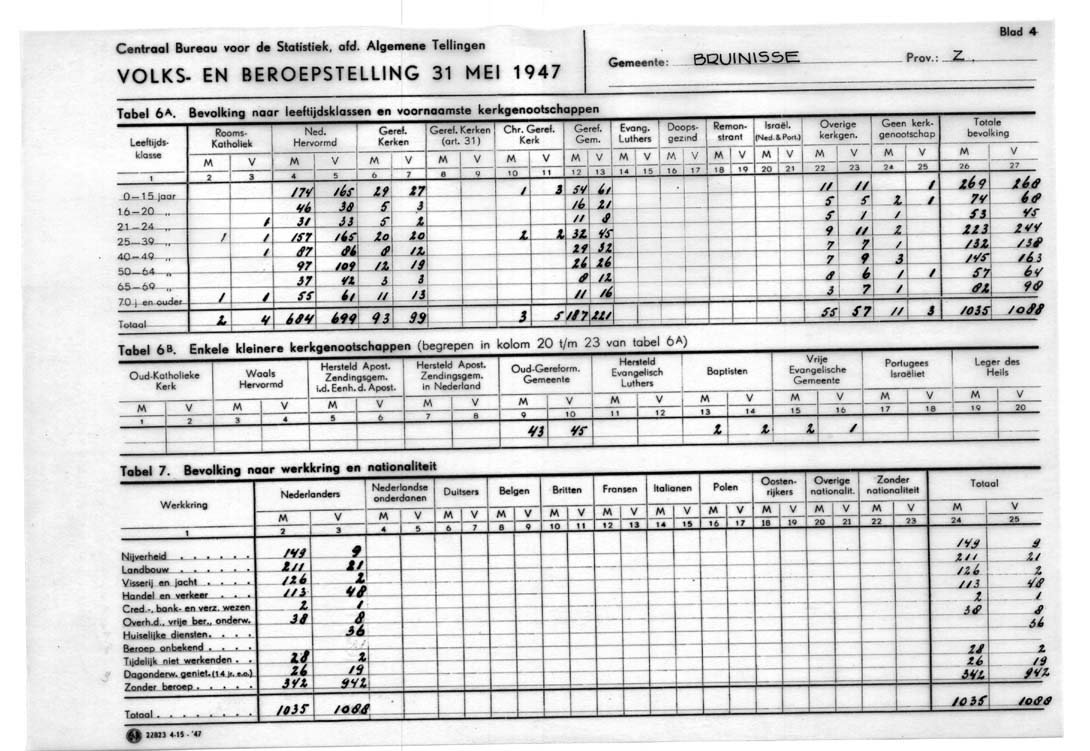 Blad 4
Centraal Bureau voor de Statistiek, afd. Algemene Tellingen
VOLKS- EN BEROEPSTELLING 31 MEI 1947
Gemeente: BRUINISSE Prov.: Z.
Tabel 6A. Bevolking naar leeftijdsklassen en voornaamste kerkgenootschappen
Leeftijdsklasse | Rooms-Katholiek | Ned. Hervormd | Geref. Kerken | Geref. Kerken (art. 31) | Chr. Geref. Kerk | Geref. Gem. | Evang. Luthers | Doopsgezind | Remonstrant | Israël. (Ned. & Port.) | Overige kerkgen. | Geen kerkgenootschap | Totale bevolking
M V M V M V M V M V M V M V M V M V M V M V M V M V
1 2 3 4 5 6 7 8 9 10 11 12 13 14 15 16 17 18 19 20 21 22 23 24 25 26 27
0—15 jaar 174 165 29 27 1 3 54 61 11 11 1 269 268
16—20 „ 46 38 5 3 16 21 5 5 2 1 74 68
21—24 „ 1 31 33 5 2 11 8 5 1 1 53 45
25—39 „ 1 1 157 165 20 20 2 2 32 45 9 11 2 223 244
40—49 „ 1 87 86 8 12 29 32 7 7 1 132 138
50—64 „ 97 109 12 19 26 26 7 9 3 145 163
65—69 „ 37 42 3 3 8 12 8 6 1 1 57 64
70 j en ouder 1 1 55 61 11 13 11 16 3 7 1 82 98
Totaal 2 4 684 699 93 99 3 5 187 221 55 57 11 3 1035 1088
Tabel 6B. Enkele kleinere kerkgenootschappen (begrepen in kolom 20 t/m 23 van tabel 6A)
Oud-Katholieke Kerk | Waals Hervormd | Hersteld Apost. Zendingsgem. i.d. Eenh. d. Apost. | Hersteld Apost. Zendingsgem. in Nederland | Oud-Gereform. Gemeente | Hersteld Evangelisch Luthers | Baptisten | Vrije Evangelische Gemeente | Portugees Israëliet | Leger des Heils
M V M V M V M V M V M V M V M V M V M V
1 2 3 4 5 6 7 8 9 10 11 12 13 14 15 16 17 18 19 20
43 45 2 2 2 1
Tabel 7. Bevolking naar werkkring en nationaliteit
Werkkring | Nederlanders | Nederlandse onderdanen | Duitsers | Belgen | Britten | Fransen | Italianen | Polen | Oostenrijkers | Overige nationalit. | Zonder nationaliteit | Totaal
M V M V M V M V M V M V M V M V M V M V M V M V
1 2 3 4 5 6 7 8 9 10 11 12 13 14 15 16 17 18 19 20 21 22 23 24 25
Nijverheid . . . . . . 149 9 149 9
Landbouw . . . . . . 211 21 211 21
Visserij en jacht . . . . 126 2 126 2
Handel en verkeer . . . 113 48 113 48
Cred.-, bank- en verz. wezen 2 1 2 1
Overh.d., vrije ber., onderw. 38 8 38 8
Huiselijke diensten. . . . 36 36
Beroep onbekend . . . .
Tijdelijk niet werkenden . . 28 2 28 2
Dagonderw. geniet. (14 jr. e.o.) 26 19 26 19
Zonder beroep . . . . . 342 942 342 942
Totaal . . . . . . . . 1035 1088 1035 1088
22823 4-15 - '47